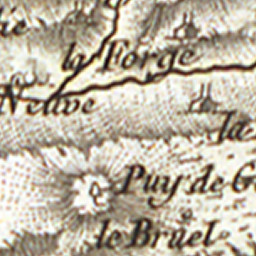 la Forge
Neuve
la
Puy de G
le Bruel